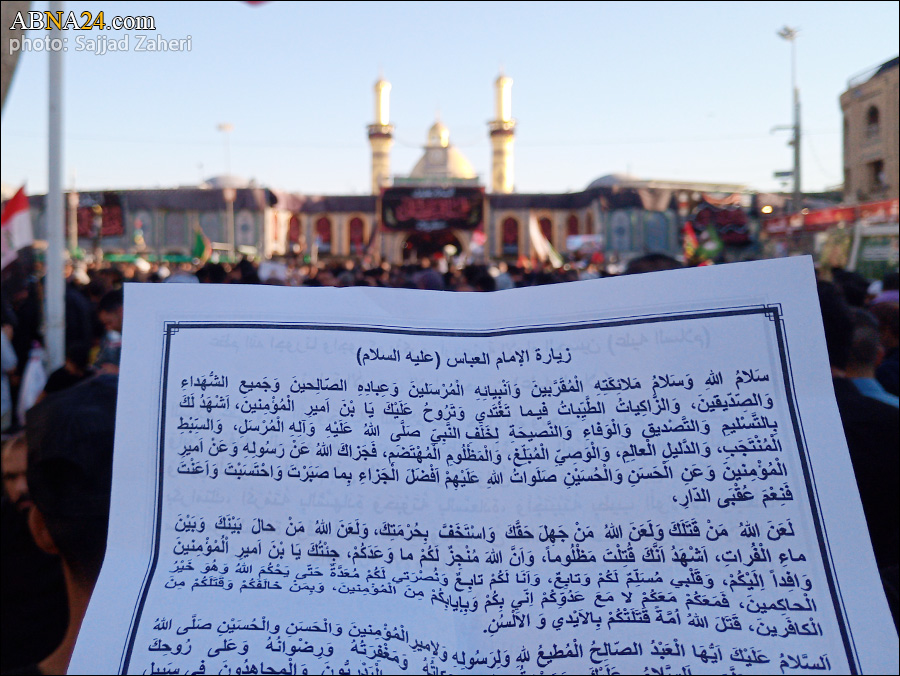 ABNA24.com
photo: Sajjad Zaheri
زيارة الإمام العباس (عليه السلام)
سَلامُ اللهِ وَسَلامُ مَلائِكَتِهِ الْمُقَرَّبينَ وَأَنْبِيائِهِ الْمُرْسَلينَ وَعِبادِهِ الصّالِحينَ وَجَميعِ الشُّهَداءِ
وَالصِّدّيقينَ، وَالزَّاكِياتُ الطَّيِّباتُ فيما تَغْتَدي وَتَرُوحُ عَلَيْكَ يَا بْنَ أميرِ الْمُؤْمِنينَ، أَشْهَدُ لَكَ
بِالتَّسْليمِ وَالتَّصْديقِ وَالْوَفاءِ وَالنَّصيحَةِ لِخَلَفِ النَّبِيِّ صَلَّى اللهُ عَلَيْهِ وَآلِهِ الْمُرْسَلِ، وَالسِّبْطِ
الْمُنْتَجَبِ، وَالدَّليلِ الْعالِمِ، وَالْوَصِيِّ الْمُبَلِّغِ، وَالْمَظْلُومِ الْمُهْتَضَمِ، فَجَزاكَ اللهُ عَنْ رَسُولِهِ وَعَنْ أَميرِ
الْمُؤْمِنينَ وَعَنِ الْحَسَنِ وَالْحُسَيْنِ صَلَواتُ اللهِ عَلَيْهِمْ أَفْضَلَ الْجَزاءِ بِما صَبَرْتَ وَاحْتَسَبْتَ وَأَعَنْتَ
فَنِعْمَ عُقْبَى الدّارِ.
لَعَنَ اللهُ مَنْ قَتَلَكَ وَلَعَنَ اللهُ مَنْ جَهِلَ حَقَّكَ وَاسْتَخَفَّ بِحُرْمَتِكَ، وَلَعَنَ اللهُ مَنْ حالَ بَيْنَكَ وَبَيْنَ
ماءِ الْفُراتِ، أَشْهَدُ أَنَّكَ قُتِلْتَ مَظْلُوماً، وَأَنَّ اللهَ مُنْجِزٌ لَكُمْ ما وَعَدَكُمْ، جِئْتُكَ يَا بْنَ أَميرِ الْمُؤْمِنينَ
وَافِداً إِلَيْكُمْ، وَقَلْبي مُسَلِّمٌ لَكُمْ وَتابِعٌ، وَأَنَا لَكُمْ تابِعٌ وَنُصْرَتي لَكُمْ مُعَدَّةٌ حَتّى يَحْكُمَ اللهُ وَهُوَ خَيْرُ
الْحاكِمينَ، فَمَعَكُمْ مَعَكُمْ لا مَعَ عَدُوِّكُمْ إِنّي بِكُمْ وَبِإِيابِكُمْ مِنَ الْمُؤْمِنينَ، وَبِمَنْ خالَفَكُمْ وَقَتَلَكُمْ مِنَ
الْكافِرينَ، قَتَلَ اللهُ أُمَّةً قَتَلَتْكُمْ بِالأَيْدي وَ الأَلْسُنِ.
السَّلامُ عَلَيْكَ أَيُّهَا الْعَبْدُ الصّالِحُ الْمُطيعُ للهِ وَلِرَسُولِهِ وَلأَميرِ الْمُؤْمِنينَ وَالْحَسَنِ والْحُسَيْنِ صَلَّى اللهُ
السَّلامُ عَلَيْكَ وَرَحْمَةُ وَمَغْفِرَتُهُ وَرِضْوانُهُ وَعَلى رُوحِكَ
الْبَدْرِيُّونَ وَالْمُجاهِدُونَ في سَبيلِ